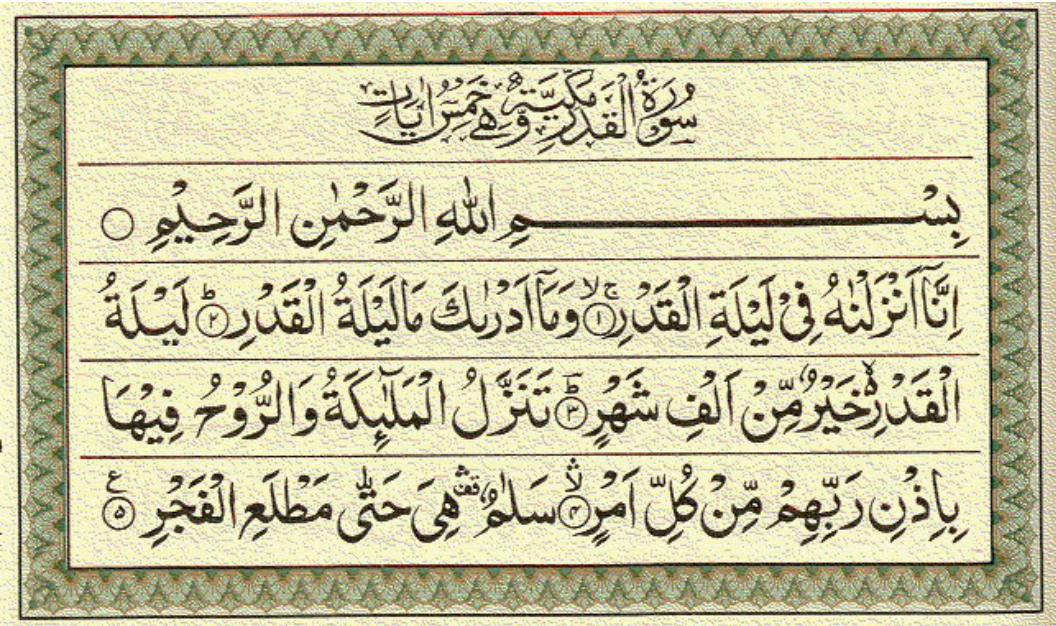 سُوْرَةُ الْقَدْرِ مَكِّيَّةٌ وَّهِيَ خَمْسُ اٰيَاتٍ
بِسْمِ اللّٰهِ الرَّحْمٰنِ الرَّحِيْمِ ○
اِنَّاۤ اَنْزَلْنٰهُ فِیْ لَیْلَةِ الْقَدْرِ ۚۖ﴿۱﴾ وَمَاۤ اَدْرٰىكَ مَا لَیْلَةُ الْقَدْرِ ؕ﴿۲﴾ لَیْلَةُ
الْقَدْرِ ۙ۬ خَیْرٌ مِّنْ اَلْفِ شَهْرٍ ؕ﴿۳﴾ تَنَزَّلُ الْمَلٰٓىِٕكَةُ وَالرُّوْحُ فِیْهَا
بِاِذْنِ رَبِّهِمْ مِّنْ كُلِّ اَمْرٍ ۙ﴿۴﴾ سَلٰمٌ ۛ۫ هِیَ حَتّٰی مَطْلَعِ الْفَجْرِ ﴿۵﴾ ع